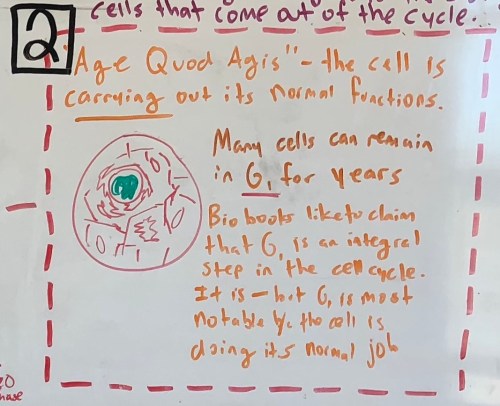 cells that come out of the cycle.
2
"Age Quod Agis" - the cell is
carrying out its normal functions.
Many cells can remain
in G₁ for years
Bio books like to claim
that G₁ is an integral
step in the cell cycle.
It is - but G₁ is most
notable b/c the cell is
doing its normal job